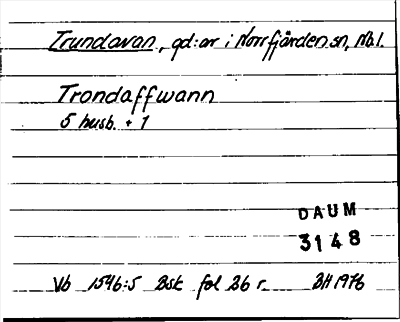 Trundavan, gd:ar i Norrfjärden sn, Nbl.
Trondaffwann
5 husb. + 1
DAUM
3148
Vb 1546:5 Bsk fol 26 r BH 1976